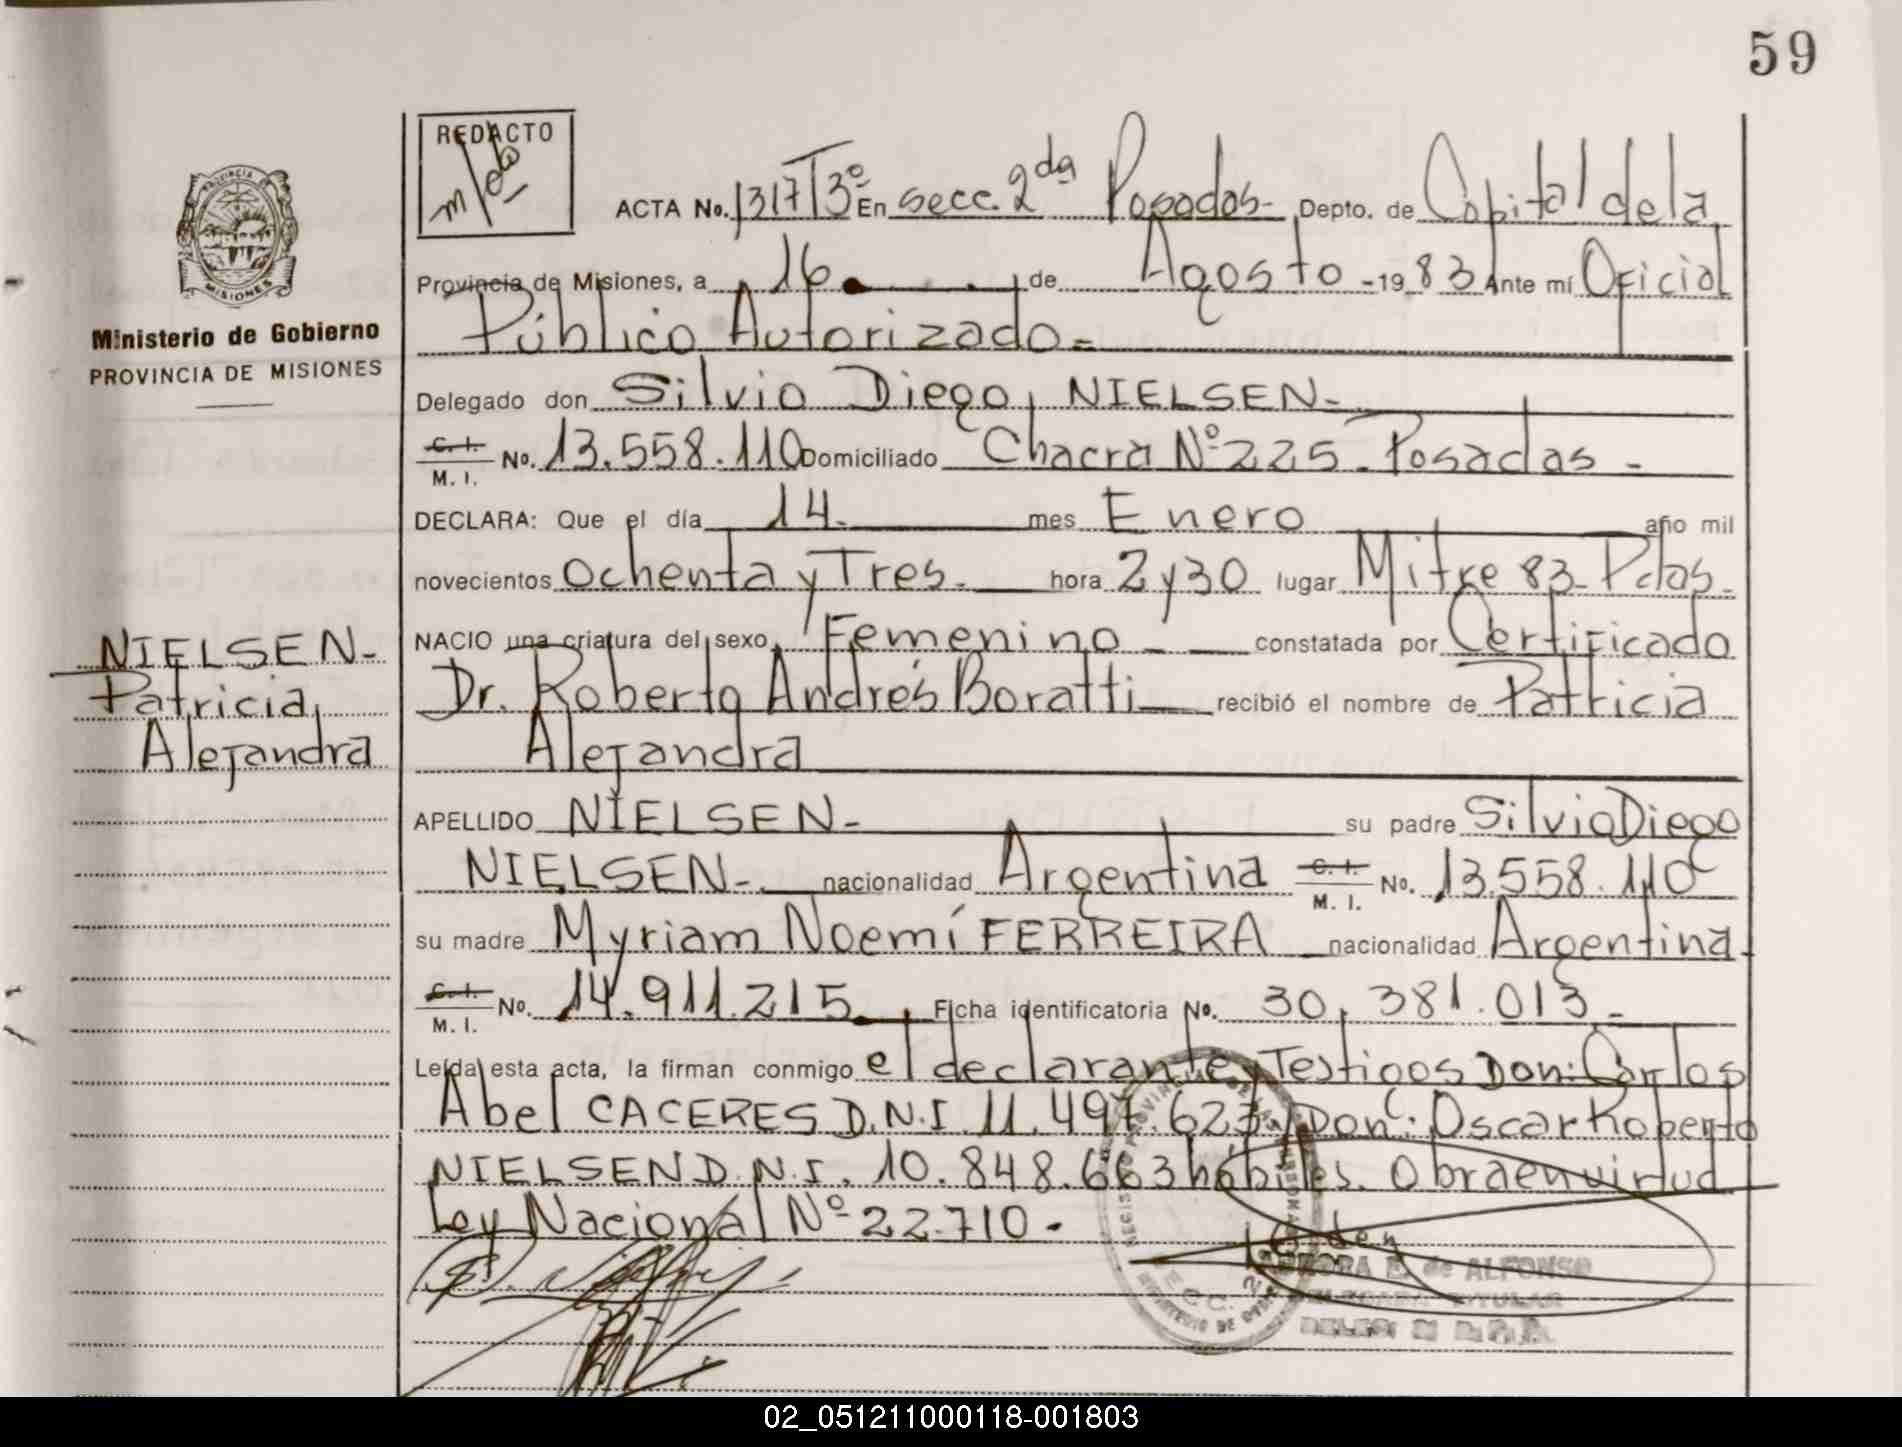 59
REDACTO
PROVINCIA DE
MISIONES
Ministerio de Gobierno
PROVINCIA DE MISIONES
ACTA No. 1317 T3º En secc. 2da Posadas- Depto. de Capital de la
Provincia de Misiones, a 16 de Agosto -1983 Ante mí Oficial
Público Autorizado=
Delegado don Silvio Diego, NIELSEN-
C. I. M. I. No. 13.558.110 Domiciliado Chacra Nº 225- Posadas-
DECLARA: Que el día 14. mes Enero año mil
novecientos ochenta y Tres. hora 2 y 30 lugar Mitre 83- Pdas-
NACIO una criatura del sexo Femenino - constatada por Certificado
Dr. Roberto Andrés Boratti recibió el nombre de Patricia
Alejandra
NIELSEN-
Patricia,
Alejandra
APELLIDO NIELSEN- su padre Silvio Diego
NIELSEN- nacionalidad Argentina C. I. M. I. No. 13.558.110
su madre Myriam Noemí FERREIRA nacionalidad Argentina-
C. I. M. I. No. 14.911.215 Ficha identificatoria No. 30.381.013-
Leída esta acta, la firman conmigo el declarante y Testigos Don: Carlos
Abel CACERES D.N.I. 11.497.623, Don: Oscar Roberto
NIELSEN D.N.I. 10.848.663 hábiles. Obra en virtud
Ley Nacional Nº 22.710.
E. de ALFONSO
TITULAR
02_051211000118-001803